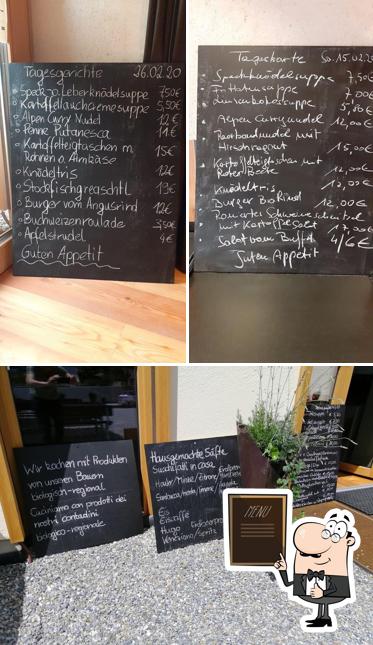 Tagesgerichte 26.02.20
Speck- o. Leberknödelsuppe 7,50€
Kartoffellauchcremesuppe 5,50€
Alpen Curry Nudel 12€
Penne Putanesca 11€
Kartoffelteigtaschen m.
Rohnen o. Almkäse 15€
Knödeltris 12€
Stockfischgröstl 19€
Burger vom Angusrind 12€
Buchweizenroulade 3,50€
Apfelstrudel 4€
Guten Appetit
Tageskarte So. 15.02.20
Speckknödelsuppe 7,50€
Frittatensuppe 7,00€
Alpen Currynudel 12,00€
Hirschragout 15,00€
Kartoffelteigtaschen mit
Roter Beete 12,00€
Knödeltris 12,00€
Burger Bo Rind
Panierter Schweineschnitzel
mit Kartoffelsalat 17,00€
Salat vom Buffet 4/6€
Guten Appetit
Wir kochen mit Produkten
von unseren Bauern
biologisch-regional
Cuciniamo con prodotti dei
nostri contadini
biologico-regionale
Hausgemachte Säfte
Succhi fatti in casa
Holler/Minze/Zitrone/
Sambuco/menta/limone/
Eis
Eiscaffé
Hugo
Veneziano/Spritz
MENU